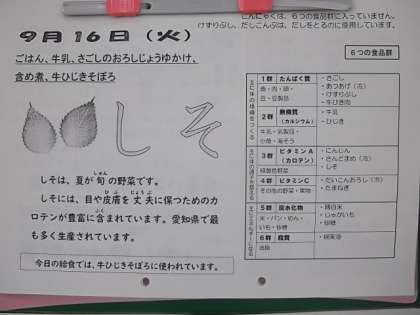 こんにゃくは、6つの食品群に入っていません。
けずりぶし、だしこんぶは、だしをとるのに使用しています。
9月16日（火）
6つの食品群
ごはん、牛乳、さごしのおろしじょうゆかけ、
含め煮、牛ひじきそぼろ
しそ
しそは、夏が旬の野菜です。
しゅん
しそには、目や皮膚を丈夫に保つためのカ
ひふ
じょうぶ
ロテンが豊富に含まれています。愛知県で最
も多く生産されています。
今日の給食では、牛ひじきそぼろに使われています。
1群 たんぱく質
魚・肉・卵・
豆・豆製品
・さごし
・あつあげ（冷）
・けずりぶし
・牛ひき肉
2群 無機質
（カルシウム）
牛乳・乳製品・
小魚・海そう
・牛乳
・ひじき
3群 ビタミンA
（カロテン）
緑黄色野菜
・にんじん
・さんどまめ（冷）
・しそ
4群 ビタミンC
その他の野菜・果物
・だいこんおろし（冷）
・たまねぎ
5群 炭水化物
米・パン・めん・
いも・砂糖
・精白米
・じゃがいも
・砂糖
6群 脂質
油脂
・綿実油